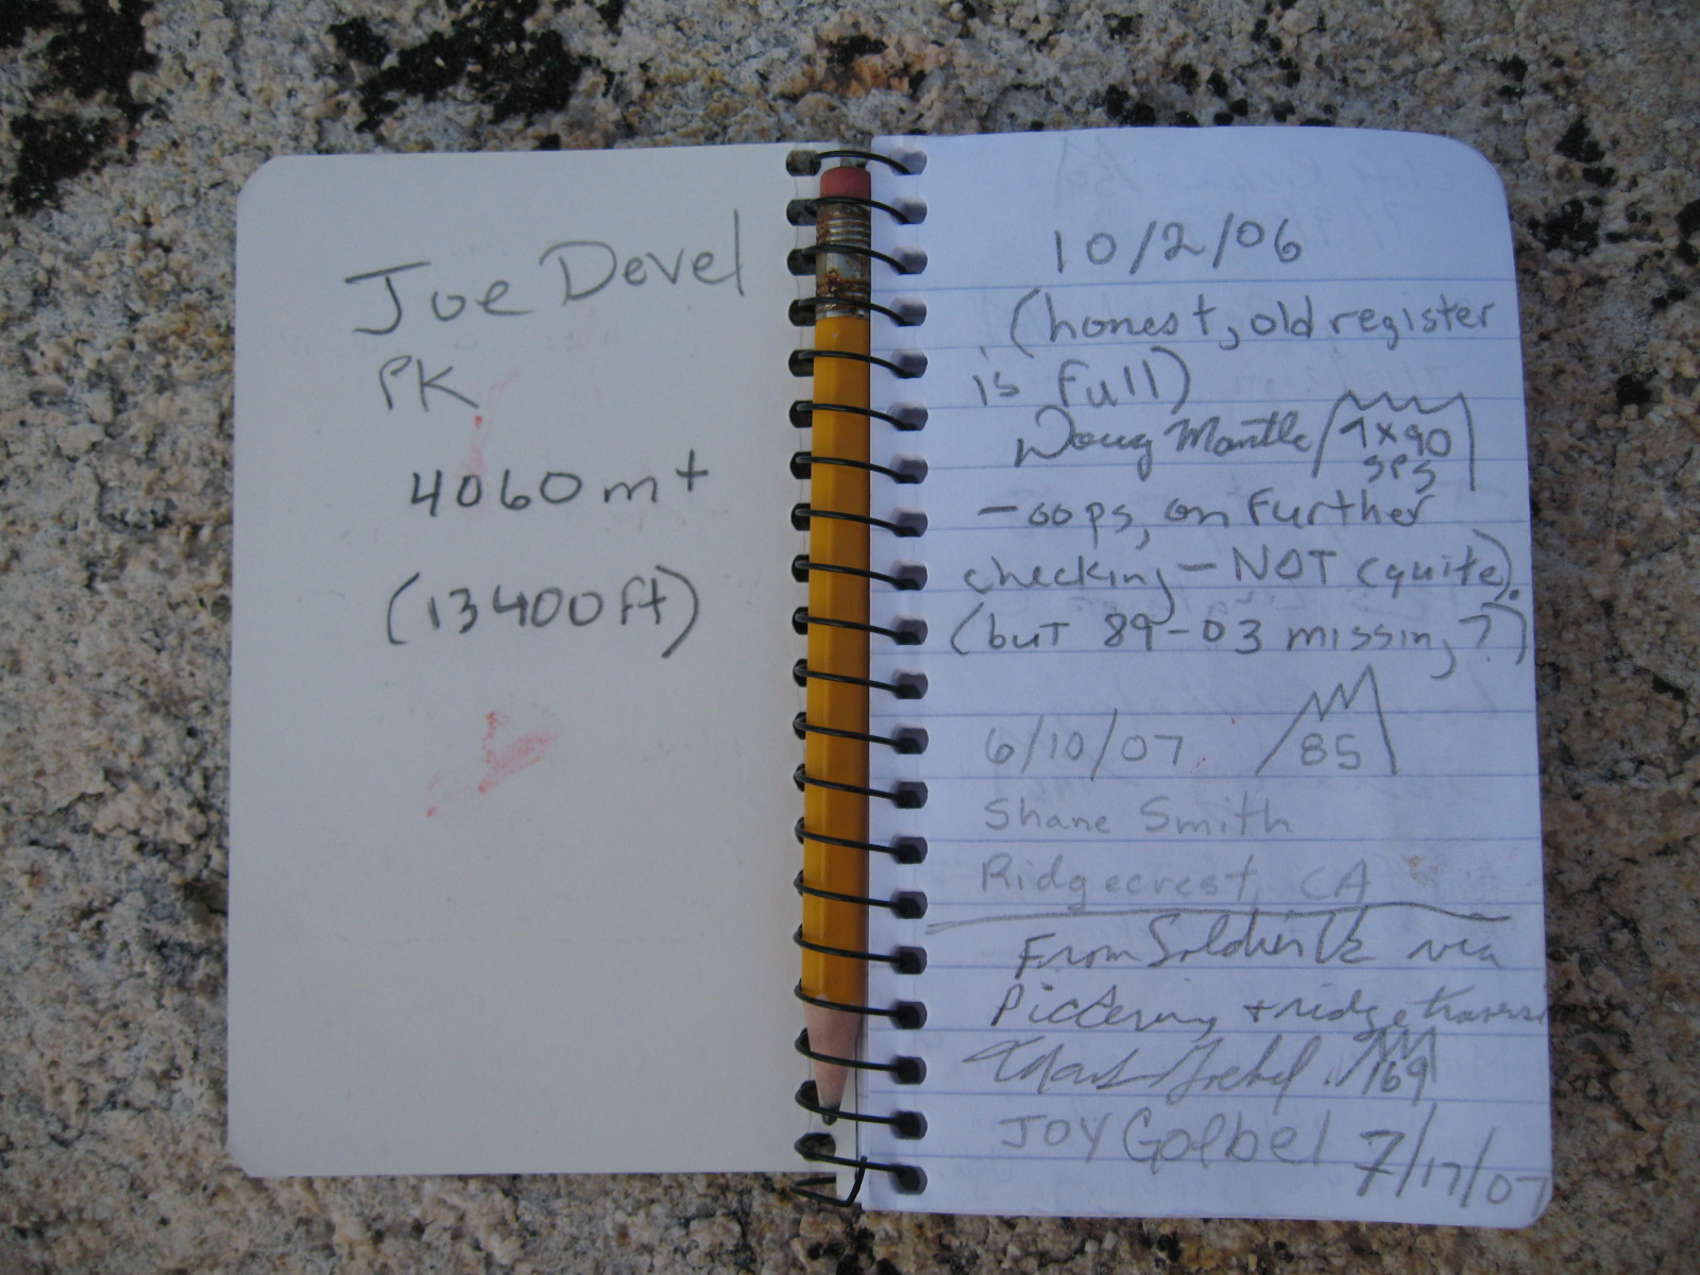 Joe Devel
PK
4060m+
(13400ft)
10/2/06
(honest, old register
is full)
Doug Mantle 7x90
SPS
-oops, on further
checking - NOT (quite).
(but 89-03 missing?)
6/10/07 85
Shane Smith
Ridgecrest, CA
From Soldier Lk via
Pickering + ridge traverse
169
JOY Goebel 7/17/07